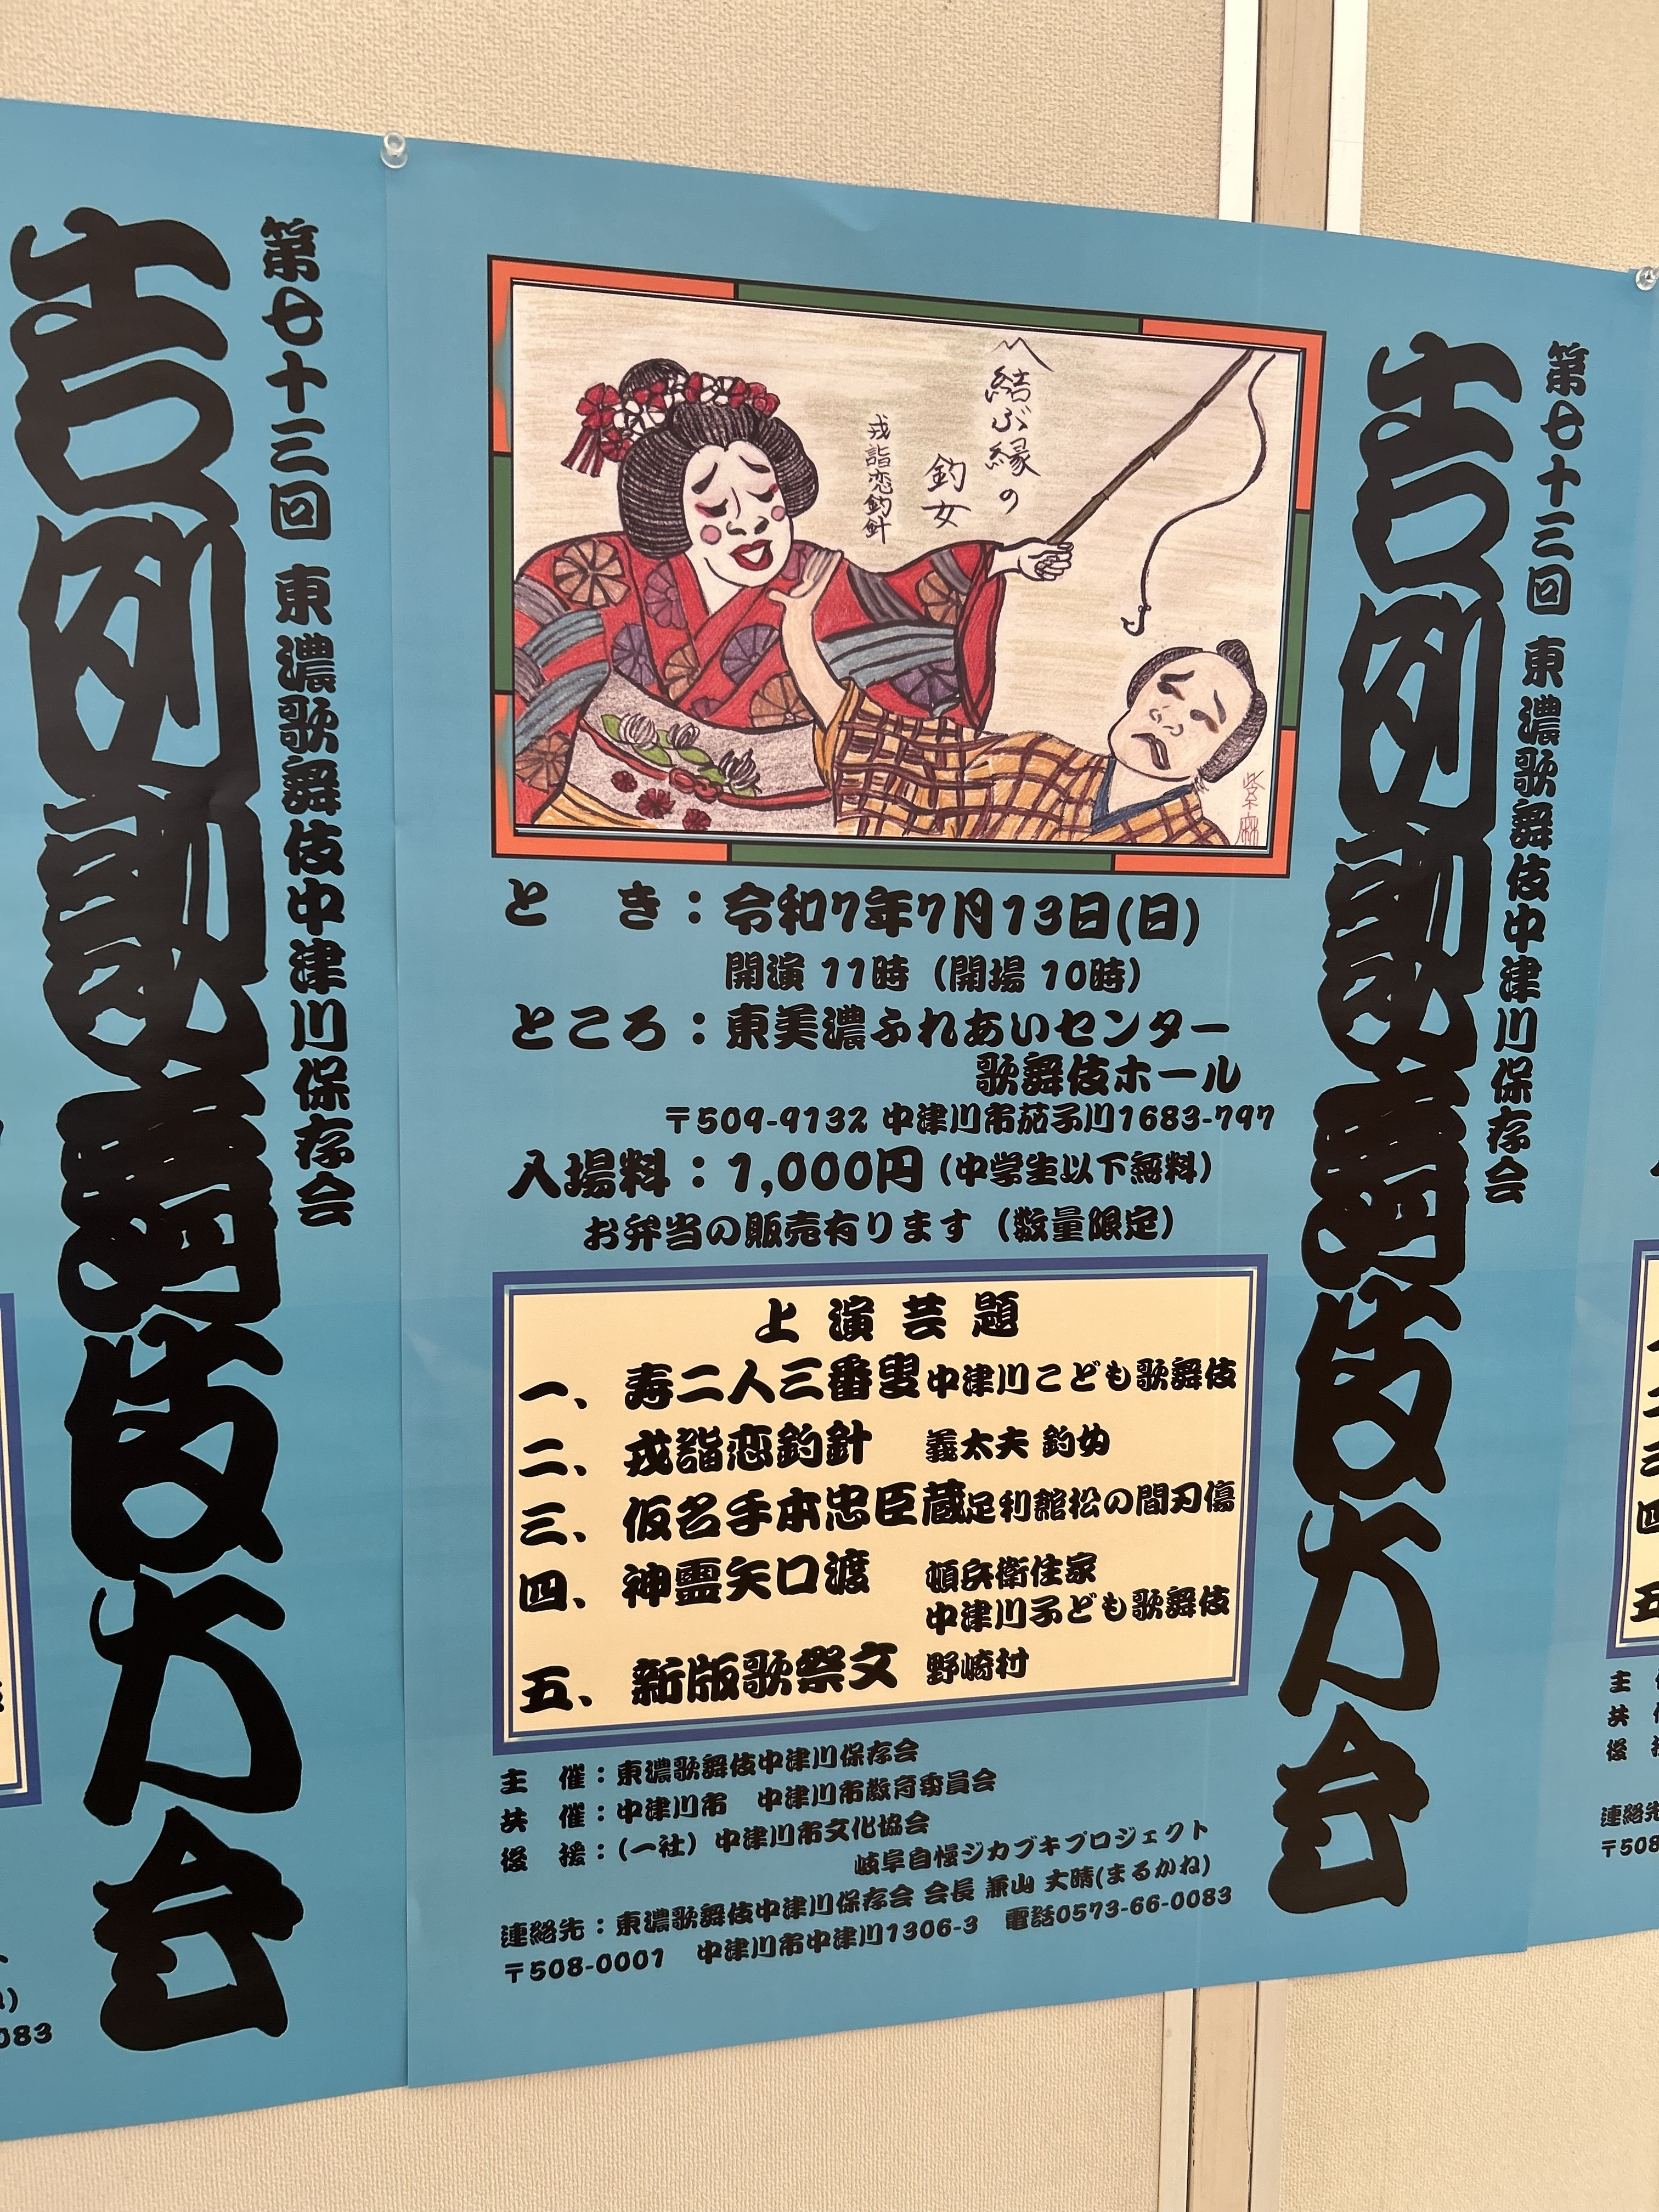 第七十三回 東濃歌舞伎中津川保存会
吉例歌舞伎大会
〽結ぶ縁の
釣女
戎詣恋釣針
紫麻
と き：令和7年7月13日(日)
開演 11時（開場 10時）
ところ：東美濃ふれあいセンター
歌舞伎ホール
〒509-9132 中津川市茄子川1683-797
入場料：1,000円（中学生以下無料）
お弁当の販売有ります（数量限定）
上演芸題
一、寿二人三番叟 中津川こども歌舞伎
二、戎詣恋釣針 義太夫 釣女
三、仮名手本忠臣蔵 足利館松の間刃傷
四、神霊矢口渡 頓兵衛住家
中津川子ども歌舞伎
五、新版歌祭文 野崎村
主 催：東濃歌舞伎中津川保存会
共 催：中津川市 中津川市教育委員会
後 援：(一社) 中津川市文化協会
岐阜自慢ジカブキプロジェクト
連絡先：東濃歌舞伎中津川保存会 会長 兼山 丈晴(まるかね)
〒508-0001 中津川市中津川1306-3 電話0573-66-0083
第七十三回 東濃歌舞伎中津川保存会
吉例歌舞伎大会